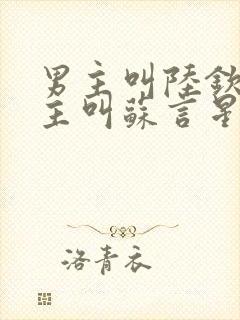 男主叫陸欽
主叫蘇言星
洛青衣